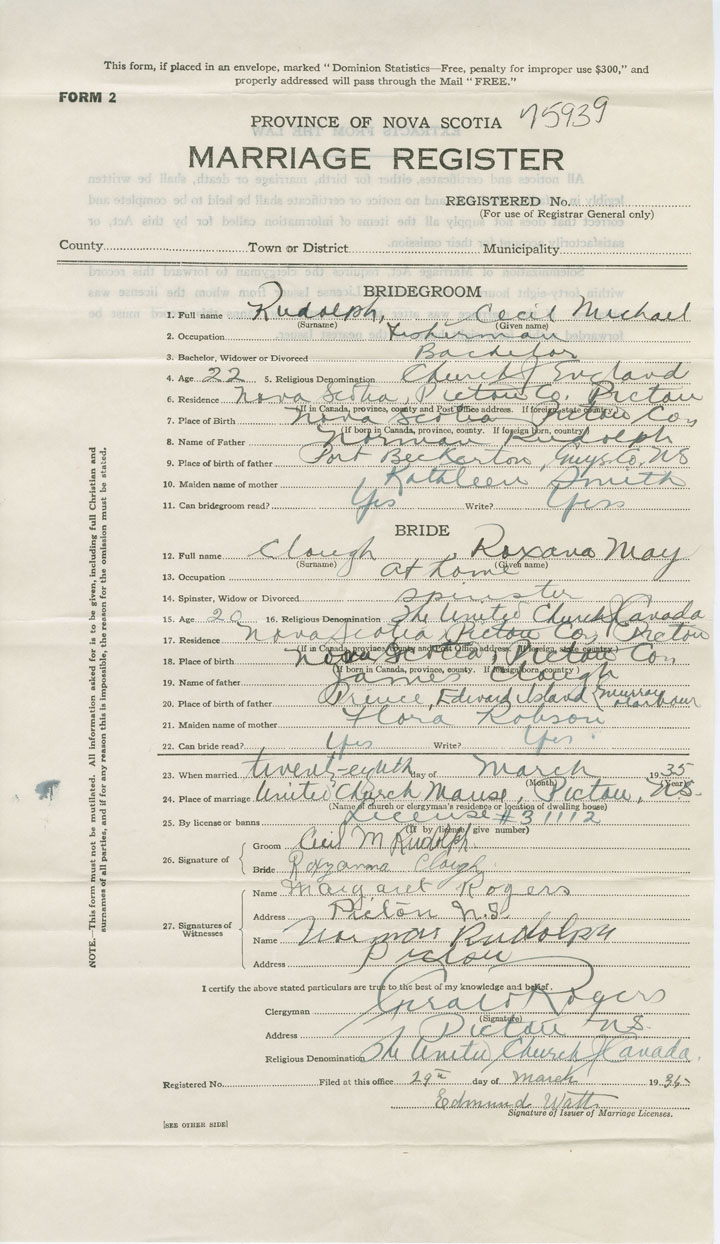 This form, if placed in an envelope, marked "Dominion Statistics—Free, penalty for improper use $300," and
properly addressed will pass through the Mail "FREE."
FORM 2
PROVINCE OF NOVA SCOTIA 75939
MARRIAGE REGISTER
REGISTERED No.
(For use of Registrar General only)
County Town or District Municipality
BRIDEGROOM
1. Full name Rudolph, Cecil Michael
(Surname) (Given name)
2. Occupation Fisherman
3. Bachelor, Widower or Divorced Bachelor
4. Age 22 5. Religious Denomination Church of England
6. Residence Nova Scotia, Pictou Co. Pictou
(If in Canada, province, county and Post Office address. If foreign, state country)
7. Place of Birth Nova Scotia Pictou Co,
(If born in Canada, province, county. If foreign born, country)
8. Name of Father Norman Rudolph
9. Place of birth of father Port Beckerton, Guys. Co. NS
10. Maiden name of mother Kathleen Smith
11. Can bridegroom read? Yes Write? Yes
BRIDE
12. Full name Clough, Roxana May
(Surname) (Given name)
13. Occupation at home
14. Spinster, Widow or Divorced Spinster
15. Age 20 16. Religious Denomination The United Church of Canada
17. Residence Nova Scotia Pictou Co, Pictou
(If in Canada, province, county and Post Office address. If foreign, state country)
18. Place of birth Nova Scotia, Pictou Co,
(If born in Canada, province, county. If foreign born, country)
19. Name of father James Clough
20. Place of birth of father Prince Edward Island (Murray Harbour
21. Maiden name of mother Flora Robson
22. Can bride read? Yes Write? Yes.
23. When married twenty-eighth day of March 1935
(Month) (Year)
24. Place of marriage United Church Manse, Pictou, N.S.
(Name of church or clergyman's residence or location of dwelling house)
25. By license or banns License # 31112
(If by license, give number)
26. Signature of
Groom Cecil M Rudolph.
Bride Roxanna Clough
27. Signatures of Witnesses
Name Margaret Rogers
Address Pictou N.S.
Name Norman Rudolph
Address Pictou
I certify the above stated particulars are true to the best of my knowledge and belief.
Clergyman Gerald Rogers
(Signature)
Address Pictou N.S.
Religious Denomination The United Church of Canada.
Registered No. Filed at this office 29th day of March 1935
Edmund Watts
Signature of Issuer of Marriage Licenses.
[SEE OTHER SIDE]
NOTE.—This form must not be mutilated. All information asked for is to be given, including full Christian and
surnames of all parties, and if for any reason this is impossible, the reason for the omission must be stated.